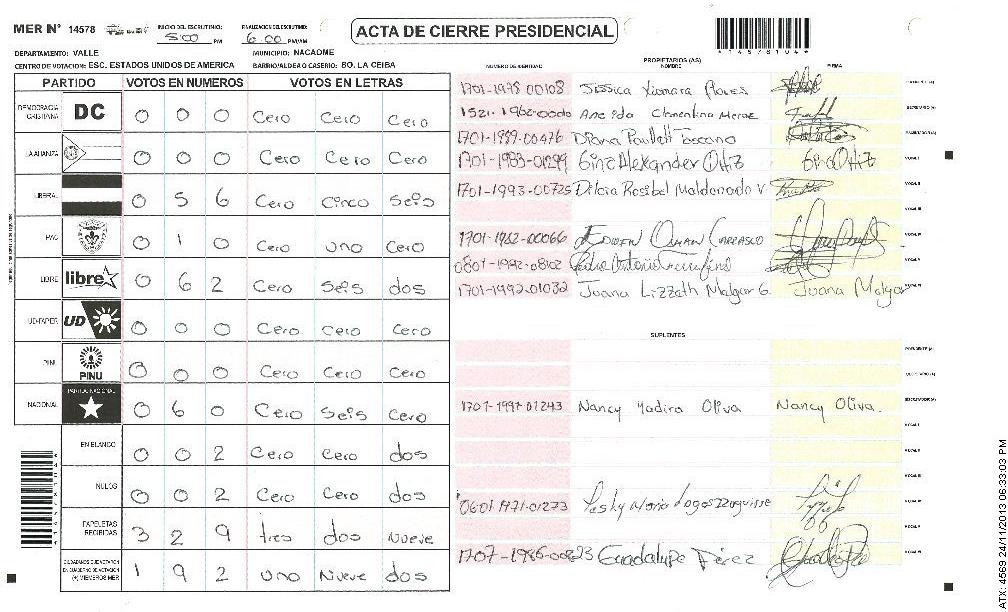 MER Nº 14578 INICIO DEL ESCRUTINIO: 5:00 PM FINALIZACION DEL ESCRUTINIO: 6:00 PM/AM ACTA DE CIERRE PRESIDENCIAL
DEPARTAMENTO: VALLE MUNICIPIO: NACAOME
CENTRO DE VOTACION: ESC. ESTADOS UNIDOS DE AMERICA BARRIO/ALDEA O CASERIO: BO. LA CEIBA
PARTIDO VOTOS EN NUMEROS VOTOS EN LETRAS
DEMOCRACIA CRISTIANA DC 0 0 0 Cero Cero Cero
LA ALIANZA 0 0 0 Cero Cero Cero
LIBERAL 0 5 6 Cero Cinco Seis
PAC 0 1 0 Cero uno Cero
LIBRE libre 0 6 2 Cero Seis dos
UD-FAPER UD 0 0 0 Cero Cero Cero
PINU PINU 0 0 0 Cero Cero Cero
NACIONAL PARTIDO NACIONAL 0 6 0 Cero Seis Cero
EN BLANCO 0 0 2 Cero Cero dos
NULOS 0 0 2 Cero Cero dos
PAPELETAS RECIBIDAS 3 2 9 tres dos nueve
CIUDADANOS QUE VOTARON EN CUADERNO DE VOTACION (+) MIEMBROS MER 1 9 2 uno Nueve dos
NUMERO DE IDENTIDAD PROPIETARIOS (AS) NOMBRE FIRMA
1701-1978 00108 Jessica Xiomara Flores
1521-1962-0000 Clementina
1701-1989-00476 Diana Paullett Toscano
1701-1983-01299 Gino Alexander Ortiz Gino Ortiz
1701-1993-00725 Dilcia Rosibel Maldonado V
1701-1962-00066 Edwin Omar Carrasco
0801-1992-08102 Pedro Antonio
1701-1992-01032 Juana Lizzeth Melgar G. Juana Melgar
SUPLENTES
1701-1997-01243 Nancy Yadira Oliva Nancy Oliva.
0601 1971-01273
1707-1986-00823 Guadalupe Pérez
ATX: 4569 24/11/2013 06:33:03 PM